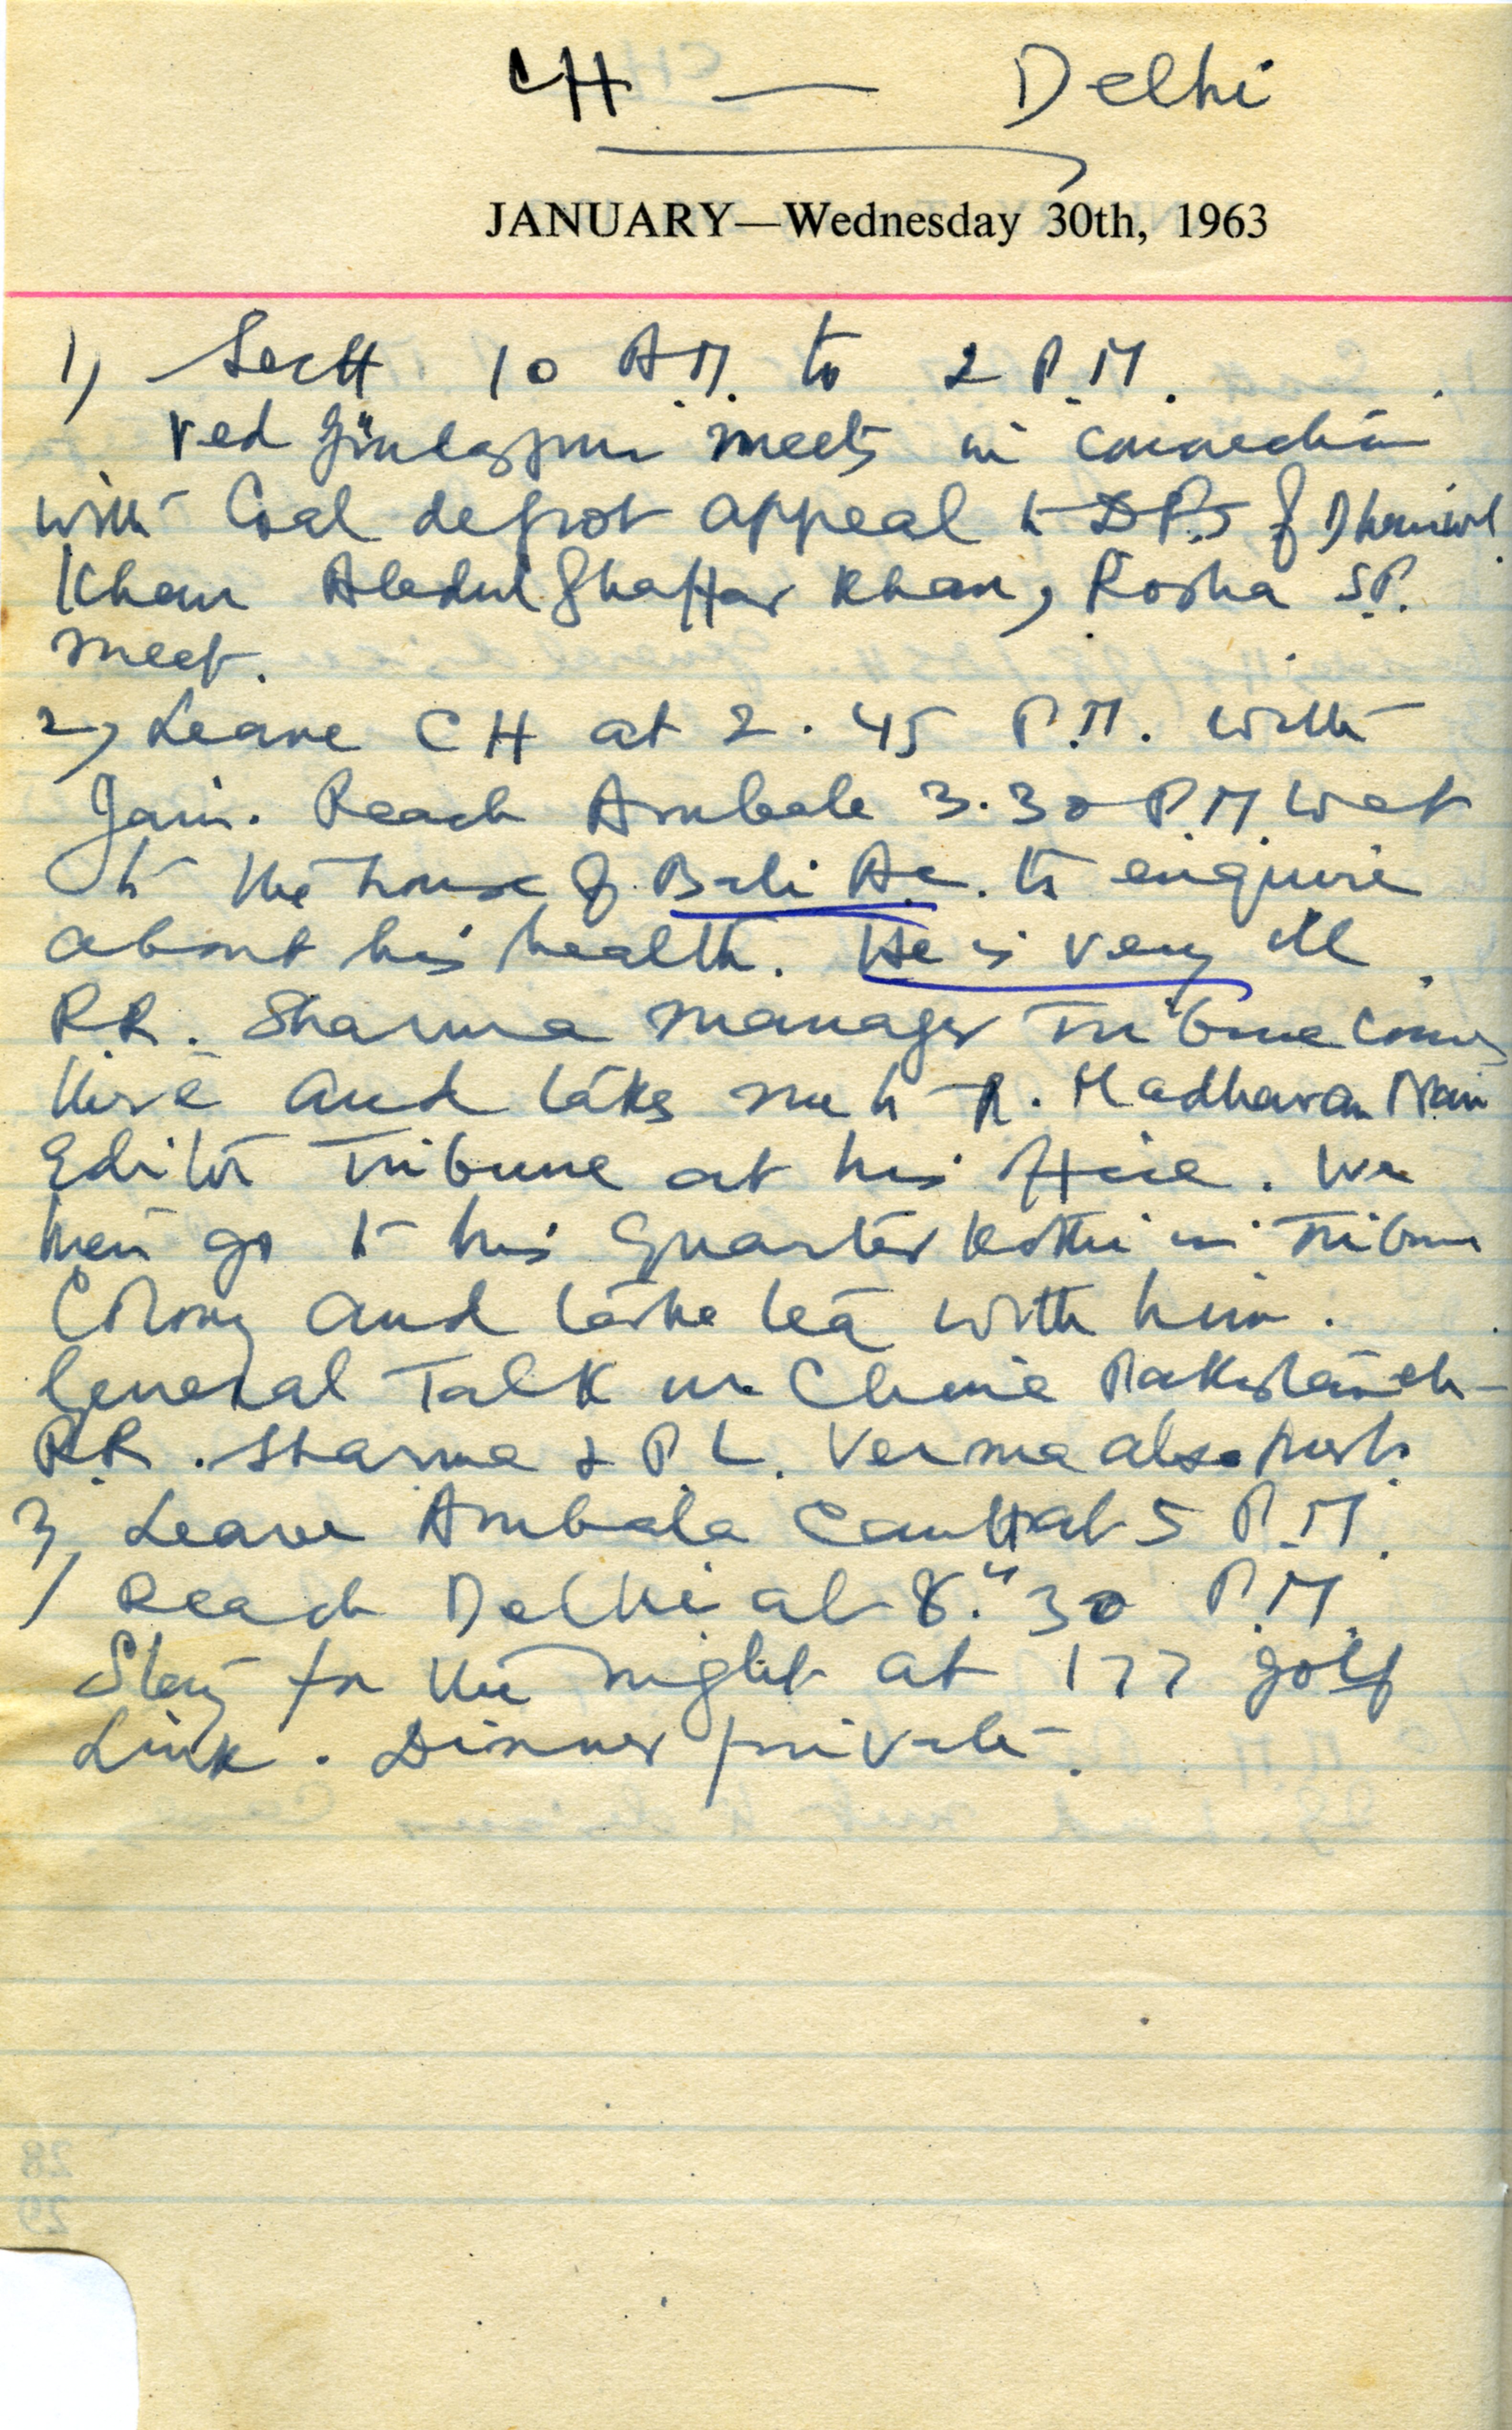 CH — Delhi
JANUARY—Wednesday 30th, 1963
1) Sectt 10 A.M. to 2 P.M.
Ved meets in connection
with Coal depot appeal to of
Khan Abdul Ghaffar Khan, Rosha S.P.
meet.
2) Leave CH at 2.45 P.M. with
Jain. Reach Ambala 3.30 P.M. Went
to the house of Bali to enquire
about his health. He is very ill.
R.R. Sharma manager Tribune comes
there and takes me to Madhavan Nair
Editor Tribune at his office. We
then go to his Quarter Kothi in Tribune
Colony and take tea with him.
General Talk on China Pakistan etc
R.R. Sharma & P.L. Verma also
3) Leave Ambala Cantt at 5 P.M.
Reach Delhi at 8.30 P.M.
Stay for the night at 177 golf
Link. Dinner private.